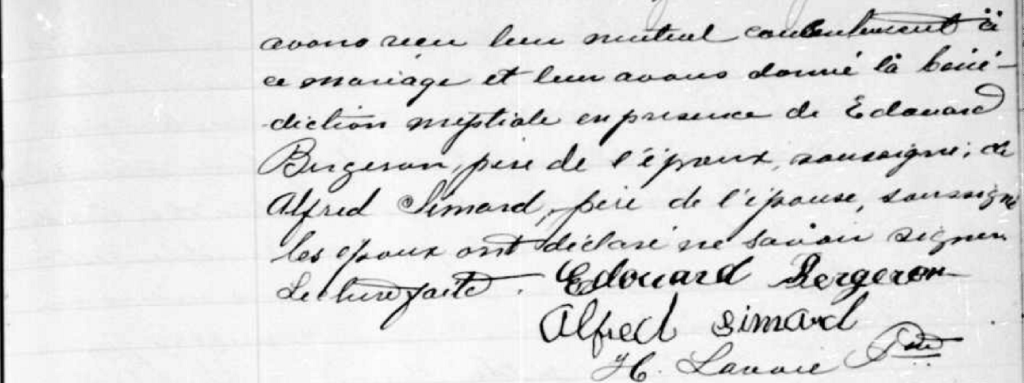 avons reçu leur mutuel consentement à
ce mariage et leur avons donné la béné-
diction nuptiale en présence de Edouard
Bergeron, père de l'époux, soussigné; de
Alfred Simard, père de l'épouse, soussigné
les époux ont déclaré ne savoir signer
Lecture faite. Edouard Bergeron
Alfred Simard
H. Lavoie Ptre